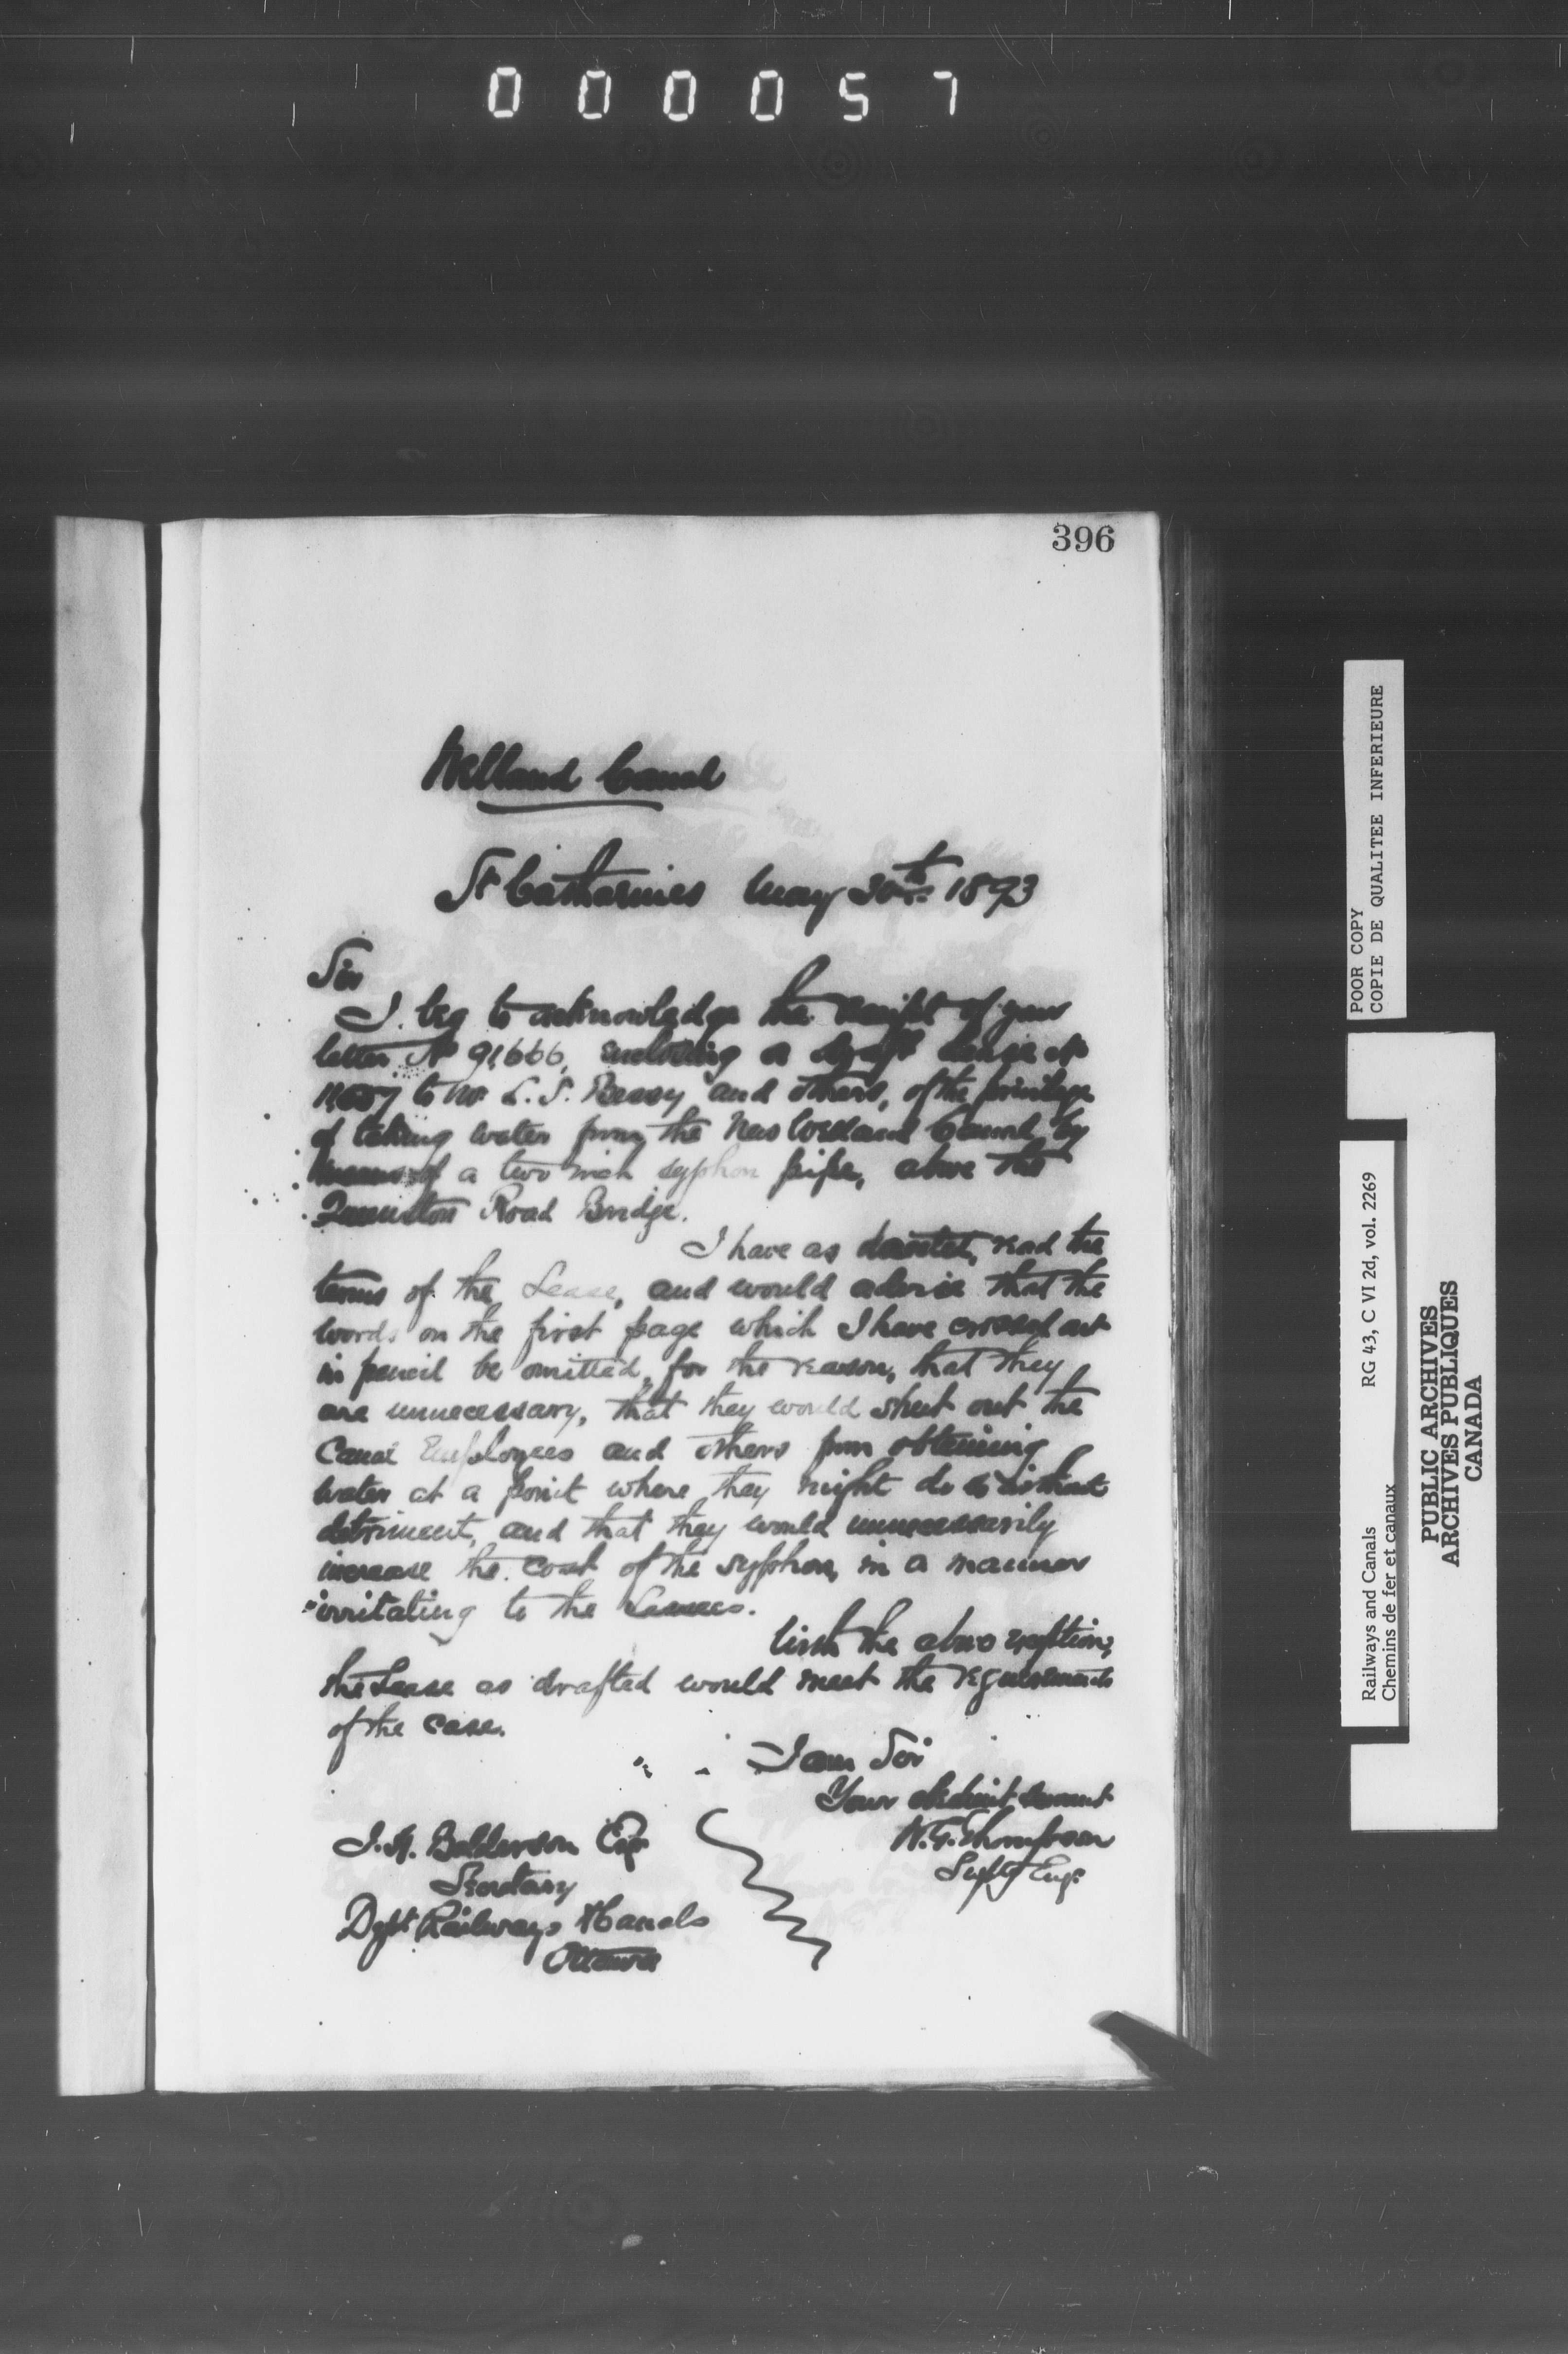 000057
396
Welland Canal
St Catharines May 30th 1893
Sir
I beg to acknowledge the receipt of your
letter No 91666, enclosing a draft lease No
to Mr L. S. Bessy and others, of the privilege
of taking water from the New Welland Canal by
means of a two inch syphon pipe, above the
Queenston Road Bridge.
I have as desired, read the
terms of the Lease, and would advise that the
words on the first page which I have crossed out
in pencil be omitted, for the reason, that they
are unnecessary, that they would shut out the
Canal Employees and others from obtaining
water at a point where they might do so without
detriment, and that they would unnecessarily
increase the cost of the syphon, in a manner
irritating to the Lessees.
With the above exception,
the Lease as drafted would meet the requirements
of the case.
I am Sir
Your obedient servant
W.G. Thompson
Suptg Engr
J. H. Balderson Esq
Secretary
Dept Railways & Canals
Ottawa
POOR COPY
COPIE DE QUALITEE INFERIEURE
Railways and Canals RG 43, C VI 2d, vol. 2269
Chemins de fer et canaux
PUBLIC ARCHIVES
ARCHIVES PUBLIQUES
CANADA